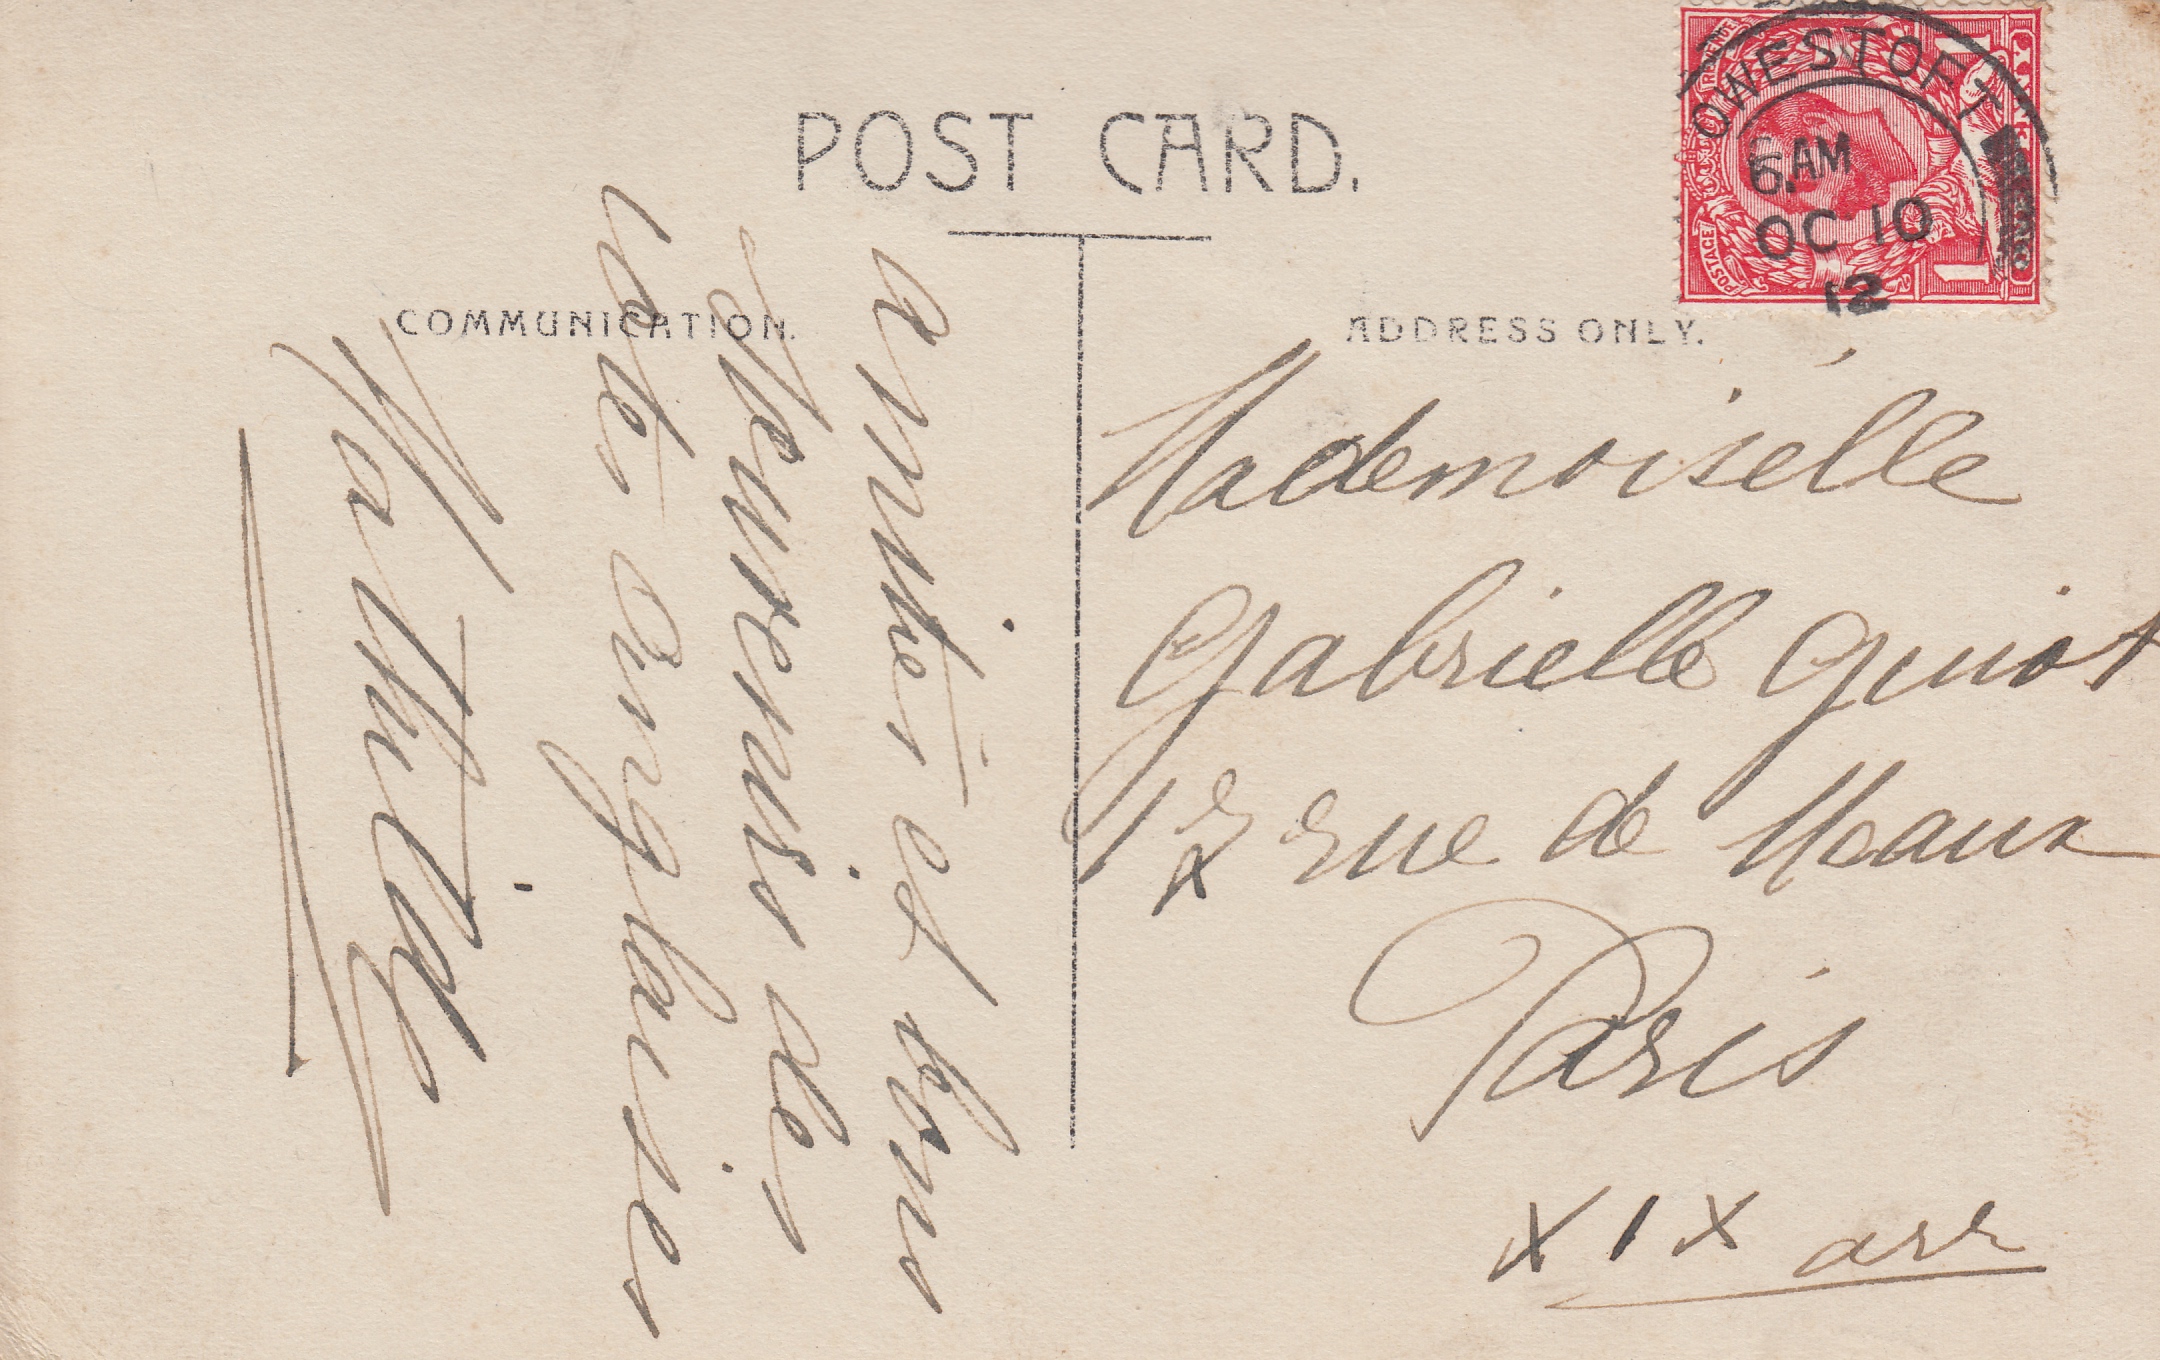 POST CARD.
COMMUNICATION.
ADDRESS ONLY.
OWESTOFT
6.AM
OC 10
12
POSTAGE
REVENUE
1 1
amitiés et bons
souvenirs des
cotes Anglaises
Mathilde
Mademoiselle
Gabrielle Guiot
rue de Meaux
Paris
XIX arr